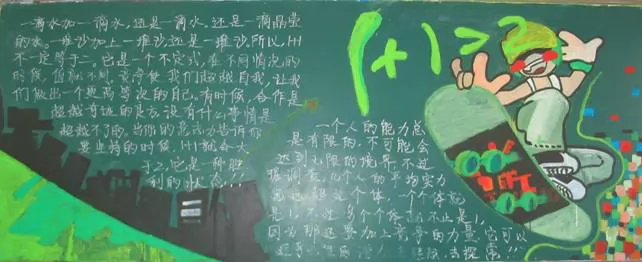 一滴水加一滴水,还是一滴水,还是一滴晶莹
的水。一堆沙加上一堆沙,还是一堆沙。所以,1+1
不一定等于二。它是一个不定式,在不同情况的
时候,值就不同。竞争使我们超越自我,让我
们做出一个更高等次的自己。有时候,合作是
超越奇迹的良方,没有什么事情是
超越不了的。当你的意志力告诉你
要坚持的时候,1+1就会大
于2,它是一种胜
利的状态!!!
1+1>2
一个人的能力总
是有限的,不可能会
达到无限的境界。不过
几个人的平均实力
个体,一个个体就
是1,不过多个个体就不止是1,
因为那还要加上竞争的力量,它可以
去探索!!!